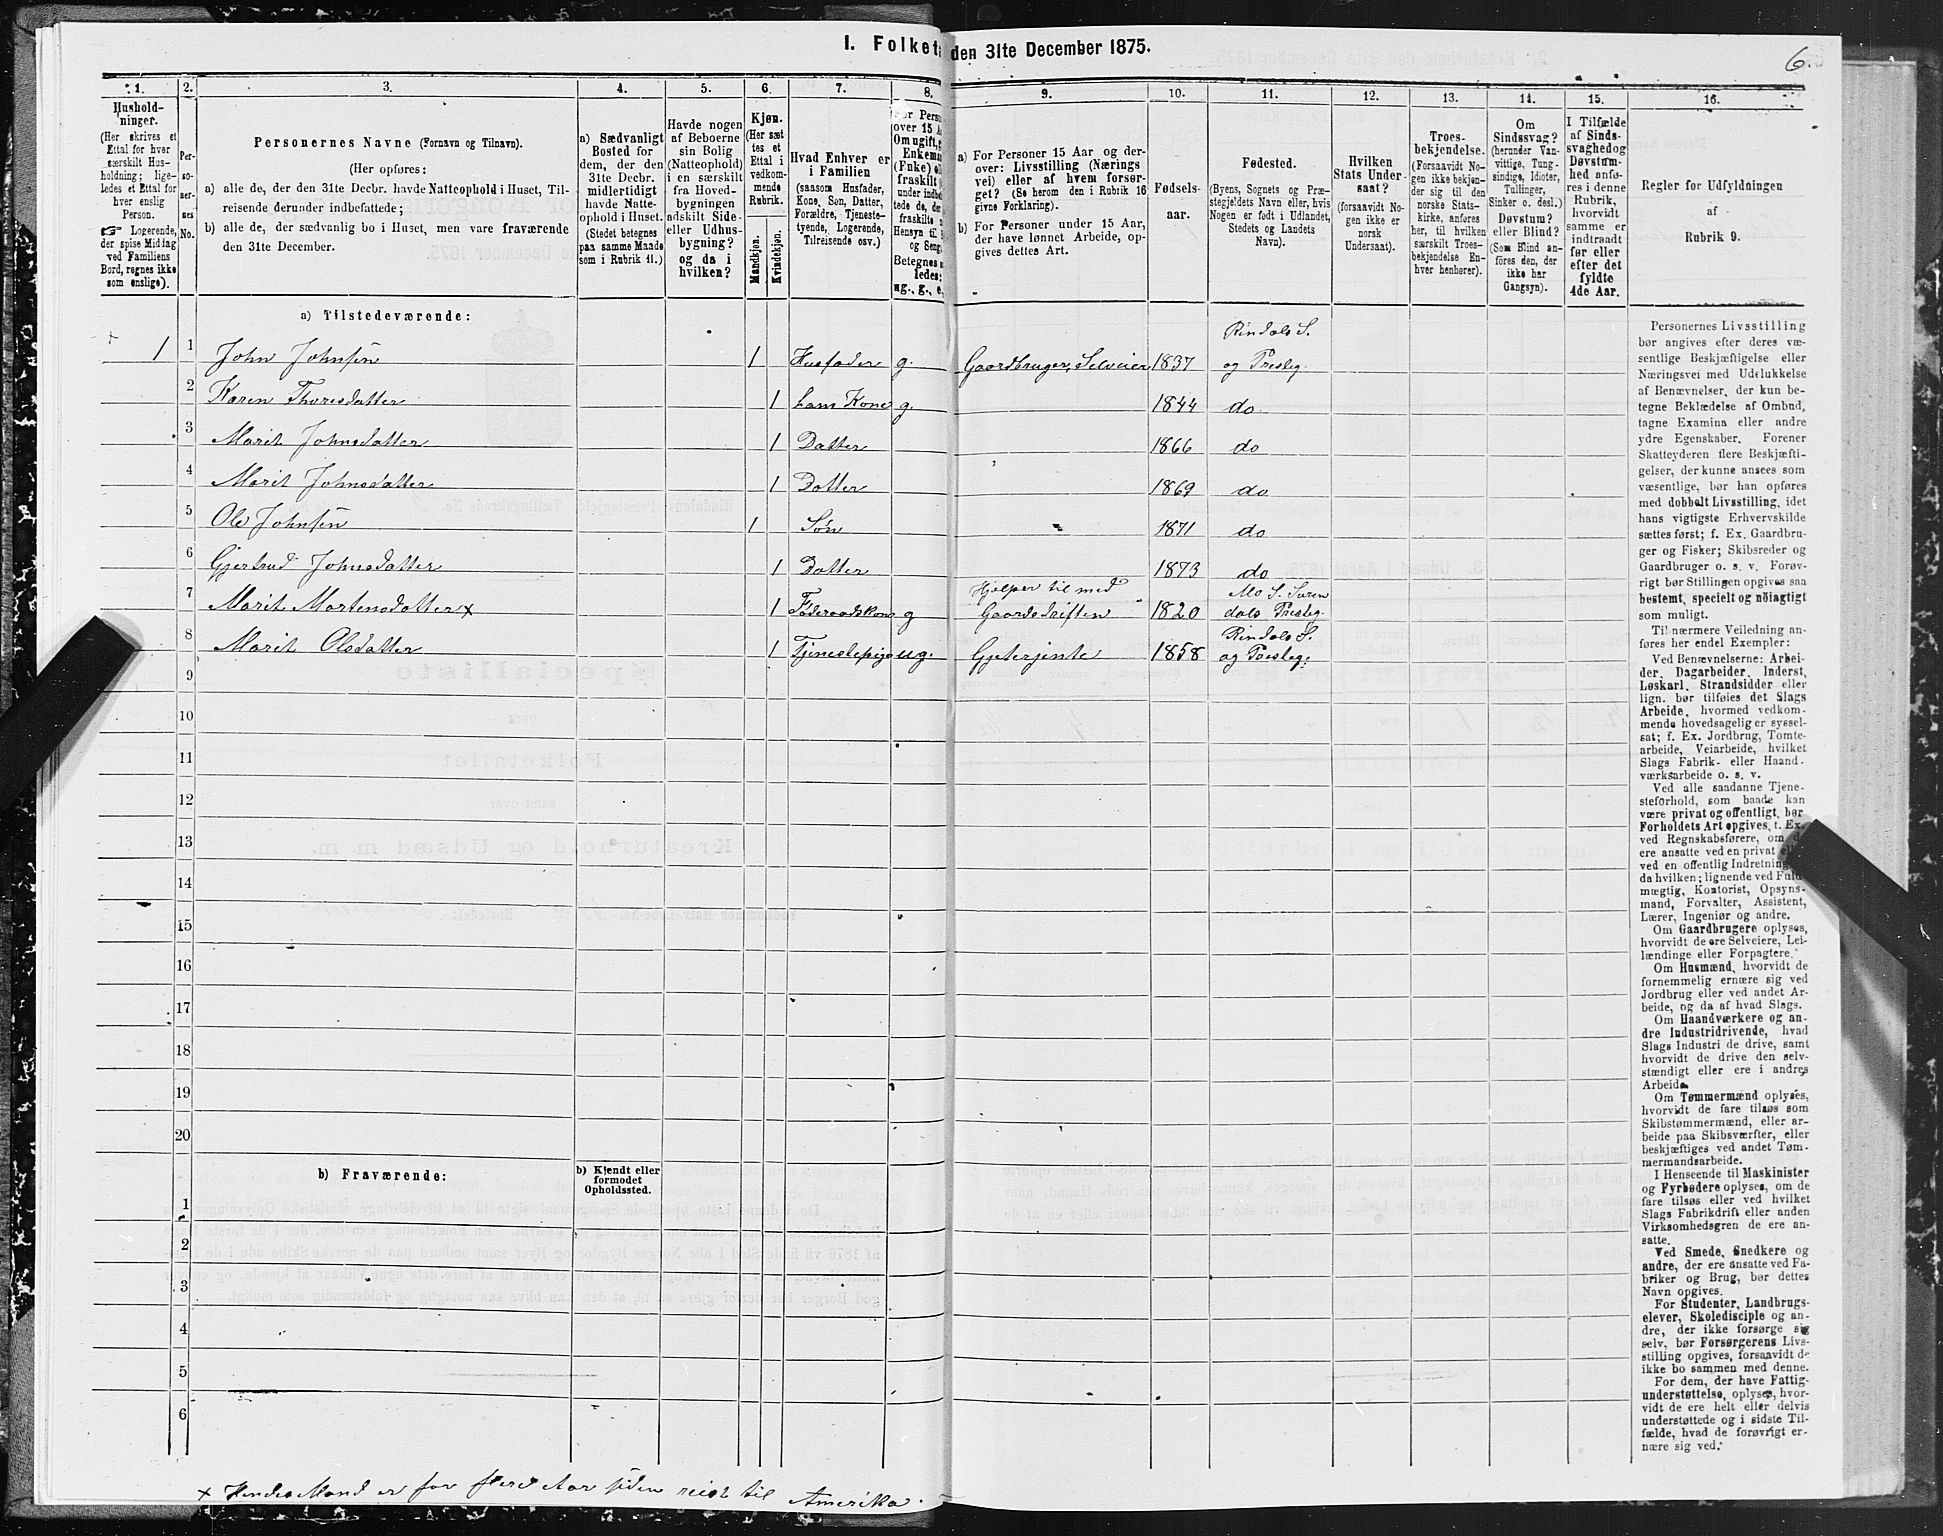 I. Folket den 31te December 1875.
6.
1. 2. 3. 4. 5. 6. 7. 8. 9. 10. 11. 12. 13. 14. 15. 16.
Hushold-
ninger.
(Her skrives et
Ettal for hver
særskilt Hus-
holdning; lige-
ledes et Ettal for
hver enslig
Person.
☞ Logerende,
der spise Middag
ved Familiens
Bord, regnes ikke
som enslige).
Per-
so-
ner-
nes
No.
Personernes Navne (Fornavn og Tilnavn).
(Her opføres:
a) alle de, der den 31te Decbr. havde Natteophold i Huset, Til-
reisende derunder indbefattede;
b) alle de, der sædvanlig bo i Huset, men vare fraværende
den 31te December.
a) Sædvanligt
Bosted for
dem, der den
31te Decbr.
midlertidigt
havde Natte-
ophold i Huset.
(Stedet betegnes
paa samme Maade
som i Rubrik 11.)
Havde nogen
af Beboerne
sin Bolig
(Natteophold)
i en særskilt
fra Hoved-
bygningen
adskilt Side-
eller Udhus-
bygning?
og da i
hvilken?
Kjøn.
(Her sæt-
tes et
Ettal i
vedkom-
mende
Rubrik.
Mandkjøn.
Kvindekjøn.
Hvad Enhver er
i Familien
(saasom Husfader,
Kone, Søn, Datter,
Forældre, Tjeneste-
tyende, Logerende,
Tilreisende osv.)
For Pers
over 15 A
Om ugift,
Enkem
(Fuke) e
fraskilt
under indb
tede de,
fraskilte
Hensyn til
og Seng
Betegnes
ledes:
ug., g., e.
a) For Personer 15 Aar og der-
over: Livsstilling (Nærings
vei) eller af hvem forsør-
get? (Se herom den i Rubrik 16
givne Forklaring).
b) For Personer under 15 Aar,
der have lønnet Arbeide, op-
gives dettes Art.
Fødsels-
aar.
Fødested.
(Byens, Sognets og Præ-
stegjeldets Navn eller, hvis
Nogen er født i Udlandet,
Stedets og Landets
Navn).
Hvilken
Stats Under-
saat?
(forsaavidt No-
gen ikke er
norsk
Undersaat).
Troes-
bekjendelse.
(Forsaavidt No-
gen ikke bekjen-
der sig til den
norske Stats-
kirke, anføres
her, til hvilken
særskilt Troes-
bekjendelse En-
hver henhører).
Om
Sindssvag?
(herunder Van-
vittige, Tung-
sindige, Idioter,
Tullinger,
Sinker o. desl.)
Døvstum?
eller Blind?
(Som Blind an-
føres den, der
ikke har
Gangsyn).
I Tilfælde
af Sinds-
svaghed og
Døvstum-
hed anfø-
res i denne
Rubrik,
hvorvidt
samme er
indtraadt
før eller
efter det
fyldte
4de Aar.
Regler for Udfyldningen
af
Rubrik 9.
a) Tilstedeværende:
1 1 John Johnsen 1 Husfader g. Gaardbruger, Selveier 1837 Rindals S.
og Præsteg.
2 Karen Thoresdatter 1 hans Kone g. 1844 do
3 Marit Johnsdatter 1 Datter 1866 do
4 Marit Johnsdatter 1 Datter 1869 do
5 Ole Johnsen 1 Søn 1871 do
6 Gjertrud Johnsdatter 1 Datter 1873 do
7 Marit Mortensdatter x 1 Føderaadskone g Hjelper til med
Gaardsdriften 1820 Mo S. Suren
dals Præsteg.
8 Marit Olsdatter 1 Tjenestepige ug. Gjeterjente 1858 Rindals S.
og Præsteg.
9
10
11
12
13
14
15
16
17
18
19
20
b) Fraværende:
b) Kjendt eller
formodet
Opholdssted.
1
2
3
4
5
6
x Hendes Mand er for flere Aar siden reist til Amerika.
Personernes Livsstilling
bør angives efter deres væ-
sentlige Beskjæftigelse eller
Næringsvei med Udelukkelse
af Benævnelser, der kun be-
tegne Beklædelse af Ombud,
tagne Examina eller andre
ydre Egenskaber. Forener
Skatteyderen flere Beskjæfti-
gelser, der kunne ansees som
væsentlige, bør han opføres
med dobbelt Livsstilling, idet
hans vigtigste Erhvervskilde
sættes først; f. Ex. Gaardbru-
ger og Fisker; Skibsreder og
Gaardbruger o. s. v. Forøv-
rigt bør Stillingen opgives saa
bestemt, specielt og nøiagtigt
som muligt.
Til nærmere Veiledning an-
føres her endel Exempler:
Ved Benævnelserne: Arbei-
der, Dagarbeider, Inderst,
Løskarl, Strandsidder eller
lign. bør tilføies det Slags
Arbeide, hvormed vedkom-
mende hovedsagelig er syssel-
sat; f. Ex. Jordbrug, Tomte-
arbeide, Veiarbeide, hvilket
Slags Fabrik- eller Haand-
værksarbeide o. s. v.
Ved alle saadanne Tjene-
steforhold, som baade kan
være privat og offentligt, bør
Forholdets Art opgives, t. Ex.
ved Regnskabsførere, om de
ere ansatte ved en privat eller
ved en offentlig Indretning
da hvilken; lignende ved Fuld-
mægtig, Kontorist, Opsyns-
mand, Forvalter, Assistent,
Lærer, Ingeniør og andre.
Om Gaardbrugere oplyses,
hvorvidt de ere Selveiere, Lei-
lændinge eller Forpagtere.
Om Husmænd, hvorvidt de
fornemmelig ernære sig ved
Jordbrug eller ved andet Ar-
beide, og da af hvad Slags.
Om Haandværkere og an-
dre Industridrivende, hvad
Slags Industri de drive, samt
hvorvidt de drive den selv-
stændigt eller ere i andres
Arbeide.
Om Tømmermænd oplyses,
hvorvidt de fare tilsøs som
Skibstømmermænd, eller ar-
beide paa Skibsværfter, eller
beskjæftiges ved andet Tøm-
mermandsarbeide.
I Henseende til Maskinister
og Fyrbødere oplyses, om de
fare tilsøs eller ved hvilket
Slags Fabrikdrift eller anden
Virksomhedsgren de ere an-
satte.
Ved Smede, Snedkere og
andre, der ere ansatte ved Fa-
briker og Brug, bør dettes
Navn opgives.
For Studenter, Landbrugs-
elever, Skoledisciple og an-
dre, der ikke forsørge sig
selv, bør Forsørgerens Livs-
stilling opgives, forsaavidt de
ikke bo sammen med denne.
For dem, der have Fattig-
understøttelse, oplyses, hvor-
vidt de ere helt eller delvis
understøttede og i sidste Til-
fælde, hvad de forøvrigt er-
nære sig ved.